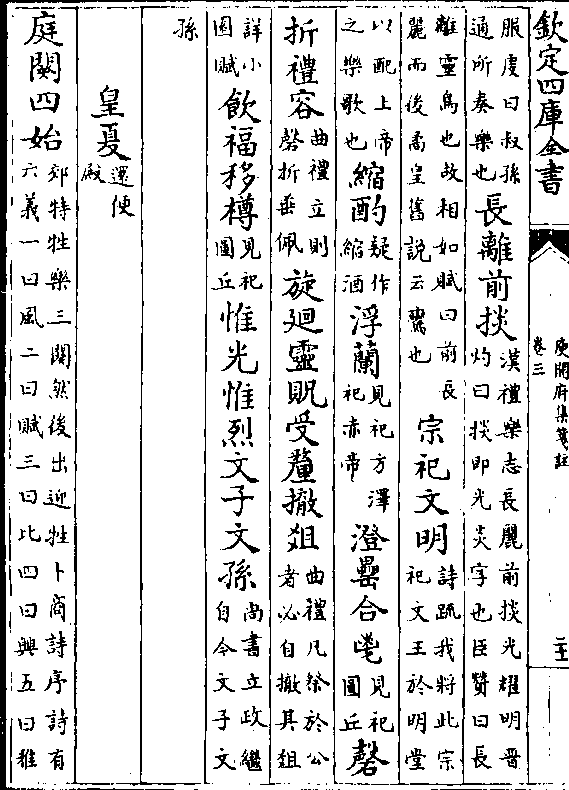 欽定四庫全書
庾開府集箋註
卷三
二十一
服虔曰叔孫通所奏樂也長離前掞漢禮樂志長麗前掞光耀明晉灼曰掞即光炎字也臣贊曰長
離靈鳥也故相如賦曰前長麗而後矞皇舊說云鸞也宗祀文明詩疏我將此宗祀文王於明堂
以配上帝之樂歌也縮酌疑作縮酒浮蘭見祀方澤祀赤帝澄罍合鬯見祀圓丘磬
折禮容曲禮立則磬折垂佩旋廻靈貺受釐撤俎曲禮凡祭於公者必自撤其俎
詳小園賦飲福移樽見祀圓丘惟光惟烈文子文孫尚書立政繼自今文子文
孫
皇夏還便殿
庭闋四始郊特牲樂三闋然後出迎牲卜商詩序詩有六義一曰風二曰賦三曰比四曰興五曰雅